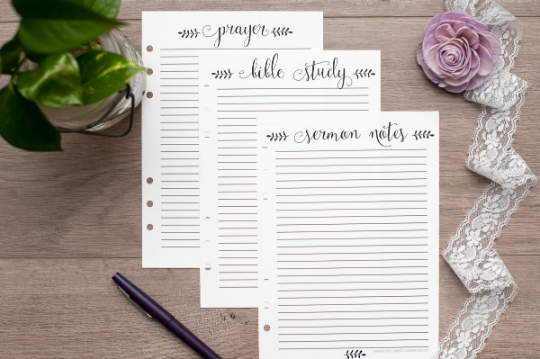 prayer
bible study
sermon notes